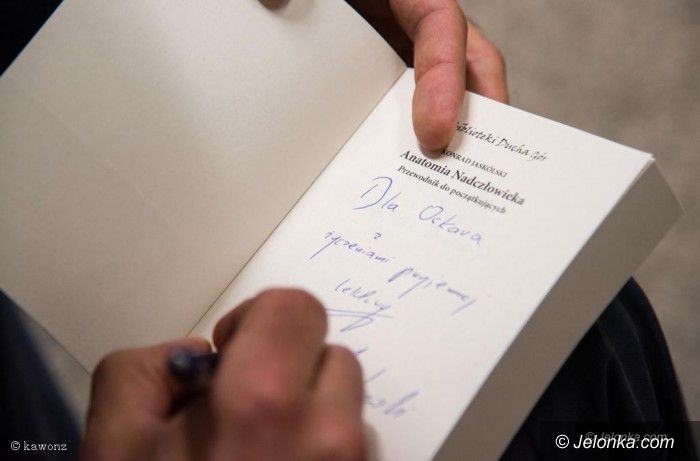 Biblioteki Ducha Gór
KONRAD JASKÓLSKI
Anatomia Nadczłowieka
Przewodnik do początkujących
Dla Oskara
z
życzeniami przyjemnej
lektury
© kawonz
© Jelonka.com